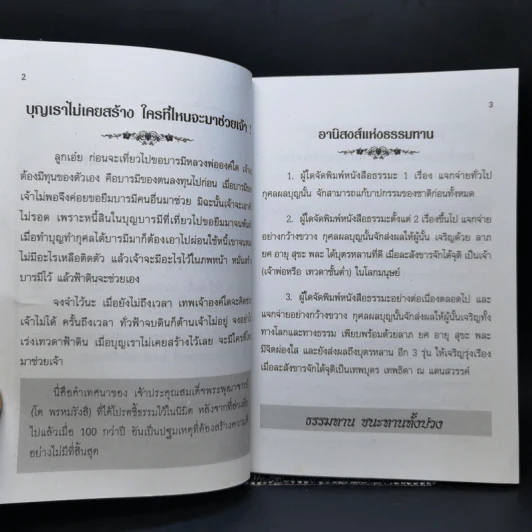 2
บุญเราไม่เคยสร้าง ใครที่ไหนจะมาช่วยเจ้า !
ลูกเอ๋ย ก่อนจะเที่ยวไปขอบารมีหลวงพ่อองค์ใด
ต้องมีทุนของตัวเอง คือบารมีของตนลงทุนไปก่อน เมื่อบารมีของ
เจ้าไม่พอจึงค่อยขอยืมบารมีคนอื่นมาช่วย มิฉะนั้นเจ้าจะเอาตัว
ไม่รอด เพราะหนี้สินในบุญบารมีที่เที่ยวไปขอยืมมาจนพ้น
เมื่อทำบุญทำกุศลได้บารมีมาก็ต้องเอาไปผ่อนใช้หนี้เขาจนหมด
ไม่มีอะไรเหลือติดตัว แล้วเจ้าจะมีอะไรไว้ในภพหน้า หมั่นสร้าง
บารมีไว้ แล้วฟ้าดินจะช่วยเอง
จงจำไว้นะ เมื่อยังไม่ถึงเวลา เทพเจ้าองค์ใดจะคิดช่วย
เจ้าไม่ได้ ครั้นถึงเวลา ทั่วฟ้าจบดินก็ต้านเจ้าไม่อยู่ จงอย่าไป
เร่งเทวดาฟ้าดิน เมื่อบุญเราไม่เคยสร้างไว้เลย จะมีใครที่ไหน
มาช่วยเจ้า
นี่คือคำเทศนาของ เจ้าประคุณสมเด็จพระพุฒาจารย์
(โต พรหมรังสี) ที่ได้โปรดชี้ธรรมไว้ในนิมิต หลังจากที่ท่านสิ้น
ไปแล้วเมื่อ 100 กว่าปี อันเป็นปฐมเหตุที่ต้องสร้างความดี
อย่างไม่มีที่สิ้นสุด
3
อานิสงส์แห่งธรรมทาน
1. ผู้ใดจัดพิมพ์หนังสือธรรมะ 1 เรื่อง แจกจ่ายทั่วไป
กุศลผลบุญนั้น จักสามารถแก้บาปกรรมของชาติก่อนทั้งหมด
2. ผู้ใดจัดพิมพ์หนังสือธรรมะตั้งแต่ 2 เรื่องขึ้นไป แจกจ่าย
อย่างกว้างขวาง กุศลผลบุญนั้นจักส่งผลให้ผู้นั้น เจริญด้วย ลาภ
ยศ อายุ สุขะ พละ ได้บุตรหลานที่ดี เมื่อละสังขารจักได้จุติ เป็นเจ้า
(เจ้าพ่อหรือ เทวดาชั้นต่ำ) ในโลกมนุษย์
3. ผู้ใดจัดพิมพ์หนังสือธรรมะอย่างต่อเนื่องตลอดไป และ
แจกจ่ายอย่างกว้างขวาง กุศลผลบุญนั้นจักส่งผลให้ผู้นั้นเจริญทั้ง
ทางโลกและทางธรรม เพียบพร้อมด้วยลาภ ยศ อายุ สุขะ พละ
มีจิตผ่องใส และยังส่งผลถึงบุตรหลาน อีก 3 รุ่น ให้เจริญรุ่งเรือง
เมื่อละสังขารจักได้จุติเป็นเทพบุตร เทพธิดา ณ แดนสวรรค์
ธรรมทาน ชนะทานทั้งปวง